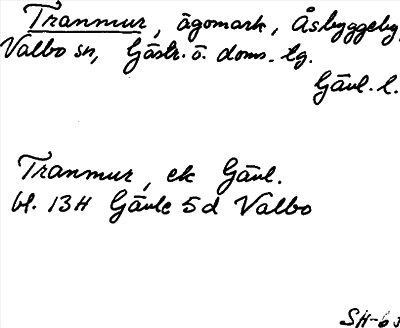 Tranmur, ägomark, Åsbyggeby,
Valbo sn, Gästr. ö. doms. tg.
Gävl. l.
Tranmur, ek Gävl.
bl. 13H Gävle 5d Valbo
SH-63